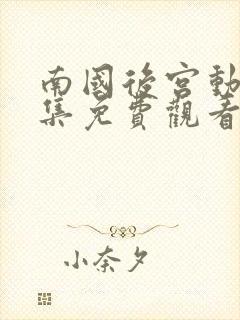 南國後宮動
集免費觀看
小奈夕